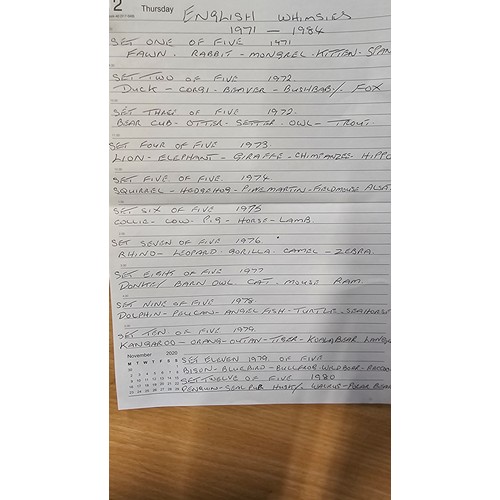 2 Thursday ENGLISH WHIMSIES
1971 - 1984
SET ONE OF FIVE 1971
FAWN. RABBIT - MONGREL - KITTEN - SPAN
SET TWO OF FIVE 1972.
DUCK - CORGI - BEAVER - BUSHBABY FOX
SET THREE OF FIVE 1972.
BEAR CUB - OTTER - SETTER. OWL - TROUT
SET FOUR OF FIVE 1973.
LION - ELEPHANT - GIRAFFE - CHIMPANZEE - HIPPO
SET FIVE OF FIVE. 1974.
SQUIRREL - HEDGEHOG - PINEMARTIN - FIELDMOUSE ALSA
SET SIX OF FIVE 1975
COLLIE - COW. PIG - HORSE - LAMB
SET SEVEN OF FIVE 1976.
RHINO - LEOPARD. GORILLA. CAMEL - ZEBRA.
SET EIGHT OF FIVE 1977
DONKEY BARN OWL CAT - MOUSE RAM.
SET NINE OF FIVE 1978.
DOLPHIN - PELICAN - ANGEL FISH - TURTLE - SEAHORSE
SET TEN OF FIVE 1979.
KANGAROO - ORANG-OUTAN - TIGER - KOALA BEAR
November 2020
M T W T F S S
SET ELEVEN 1979. OF FIVE
BISON - BLUEBIRD - BULLFROG - WILD BOAR - RACCOO
SET TWELVE OF FIVE 1980
PENGUIN - SEAL PUP HUSKY WALRUS - POLAR BEAR